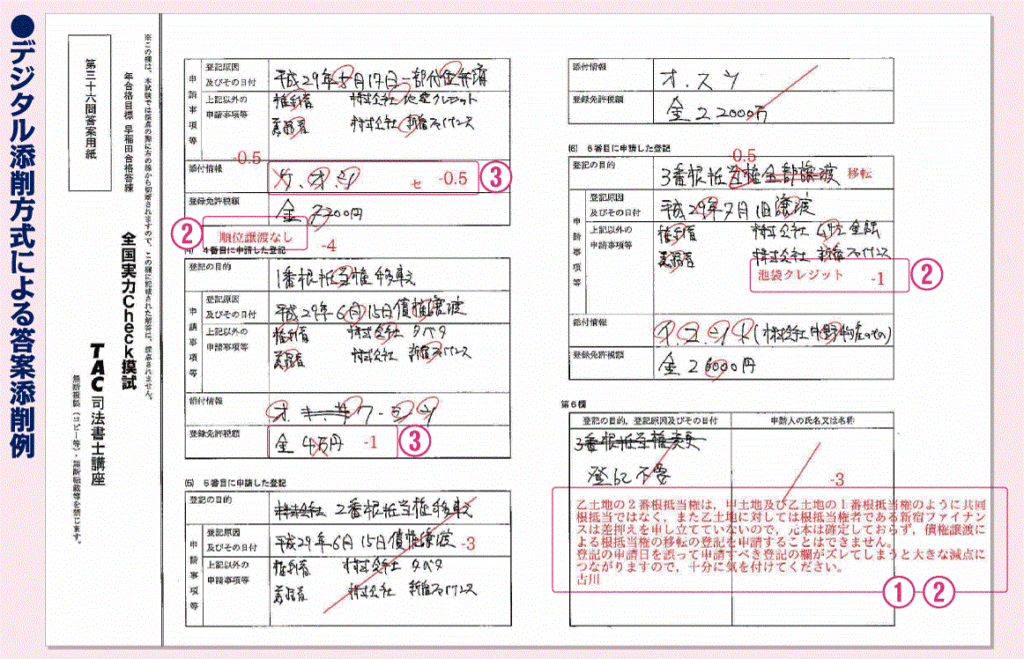 ●デジタル添削方式による答案添削例
※この欄は、本試験では採点の際に左の線から切断されますので、この欄に記載された解答は、採点されません。
年合格目標 早稲田合格答練
全国実力Check模試
TAC司法書士講座
無断複製（コピー等）・無断転載等を禁じます。
第三十六問答案用紙
申請事項等
登記原因及びその日付
平成29年5月17日一部代位弁済
上記以外の申請事項等
権利者 株式会社 池袋クレジット
義務者 株式会社 新宿ファイナンス
-0.5
添付情報
ケ、オ、シ
セ -0.5
③
登録免許税額
金 7200円
②
順位譲渡なし
-4
(4) 4番目に申請した登記
登記の目的
1番根抵当権移転
申請事項等
登記原因及びその日付
平成29年6月15日債権譲渡
上記以外の申請事項等
権利者 株式会社 タベタ
義務者 株式会社 新宿ファイナンス
添付情報
オ
ク・シ・ツ
登録免許税額
金 4万円
-1
③
(5) 5番目に申請した登記
登記の目的
株式会社 2番根抵当権移転
申請事項等
登記原因及びその日付
平成29年6月15日債権譲渡
-3
上記以外の申請事項等
権利者 株式会社 タベタ
義務者 株式会社 新宿ファイナンス
添付情報
オ、ス、ツ
登録免許税額
金 22000円
(6) 6番目に申請した登記
0.5
登記の目的
3番根抵当権全部譲渡
移転
申請事項等
登記原因及びその日付
平成29年7月1日譲渡
上記以外の申請事項等
権利者 株式会社
義務者 株式会社 新宿ファイナンス
池袋クレジット
-1
②
添付情報
登録免許税額
金 26000円
第6欄
登記の目的、登記原因及びその日付
申請人の氏名又は名称
3番根抵当権変更
登記不要
-3
乙土地の２番根抵当権は，甲土地及び乙土地の１番根抵当権のように共同
根抵当ではなく，また乙土地に対しては根抵当権者である新宿ファイナン
スは差押えを申し立てていないので，元本は確定しておらず，債権譲渡に
よる根抵当権の移転の登記を申請することはできません。
登記の申請日を誤って申請すべき登記の欄がズレてしまうと大きな減点に
つながりますので，十分に気を付けてください。
古川
①
②